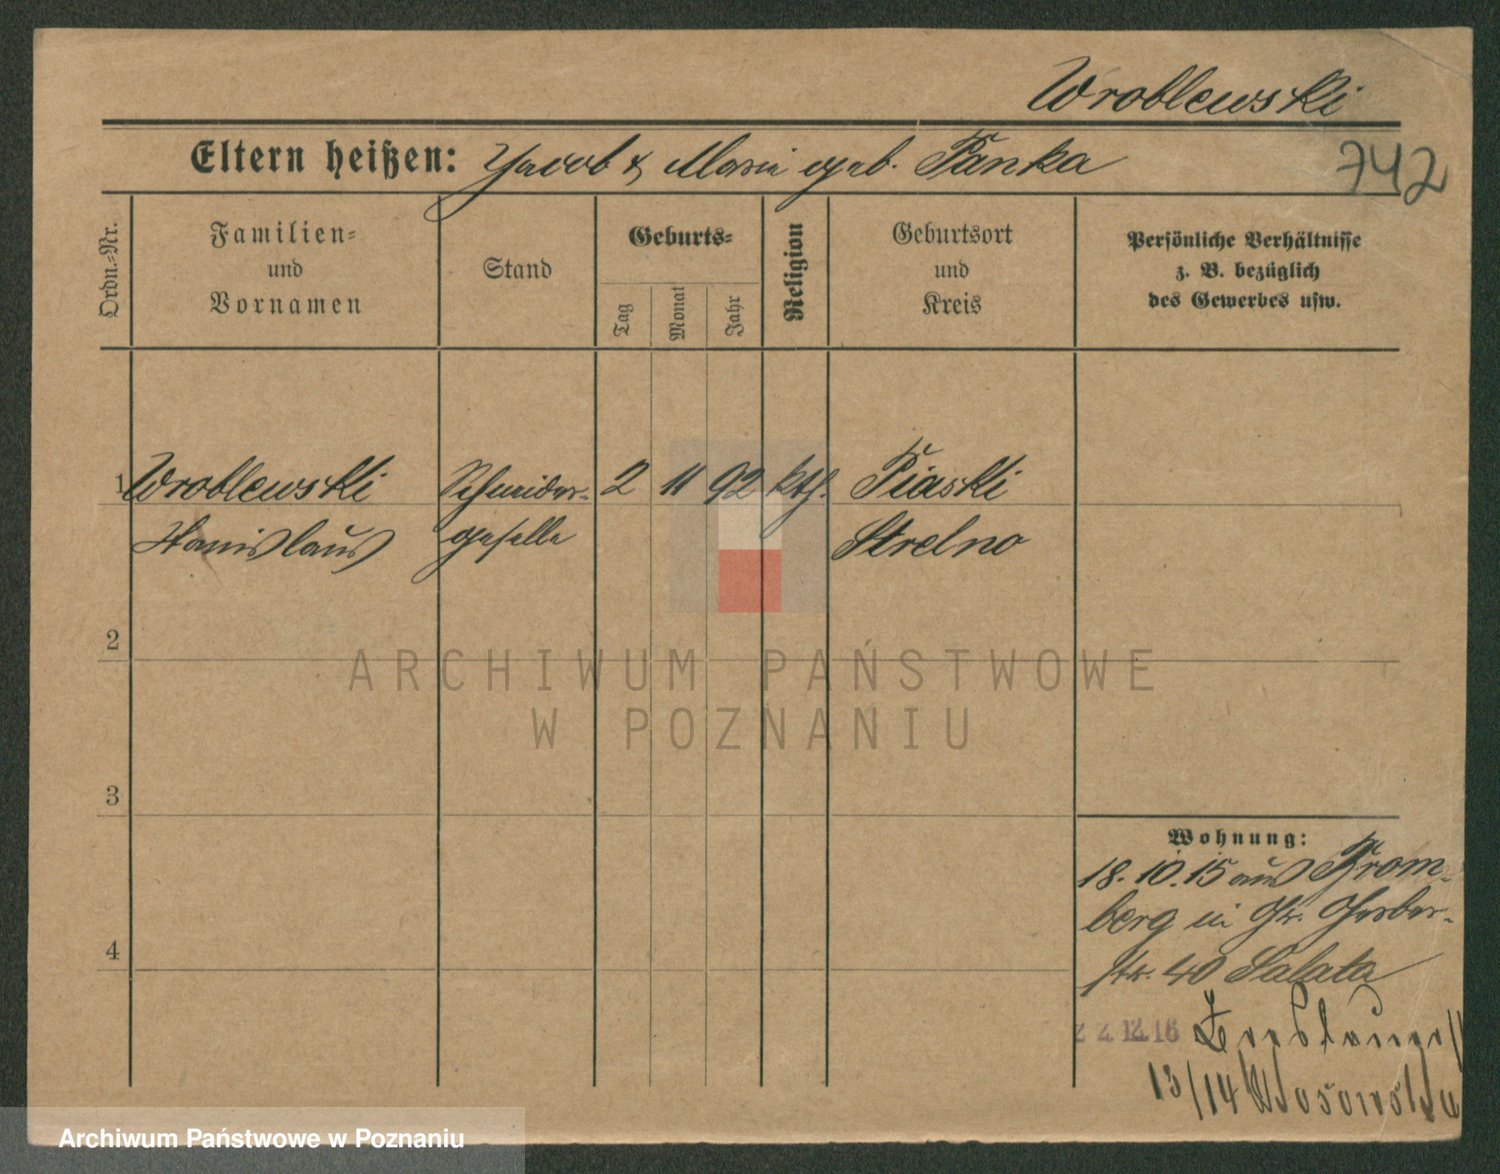 Wroblewski
Eltern heißen: Jacob & Maria geb. Panka
742
Ordn.-Nr.
Familien-
und
Vornamen
Stand
Geburts-
Tag
Monat
Jahr
Religion
Geburtsort
und
Kreis
Persönliche Verhältnisse
z. B. bezüglich
des Gewerbes usw.
1 Wroblewski Schneider- 2 11 92 kth. Piaski
Stanislaus geselle Strelno
2
ARCHIWUM PAŃSTWOWE
W POZNANIU
3
Wohnung:
18.10.15 aus Brom-
berg in Gr. Gerber-
4
str. 40 Salata
12.16
13/14
Archiwum Państwowe w Poznaniu